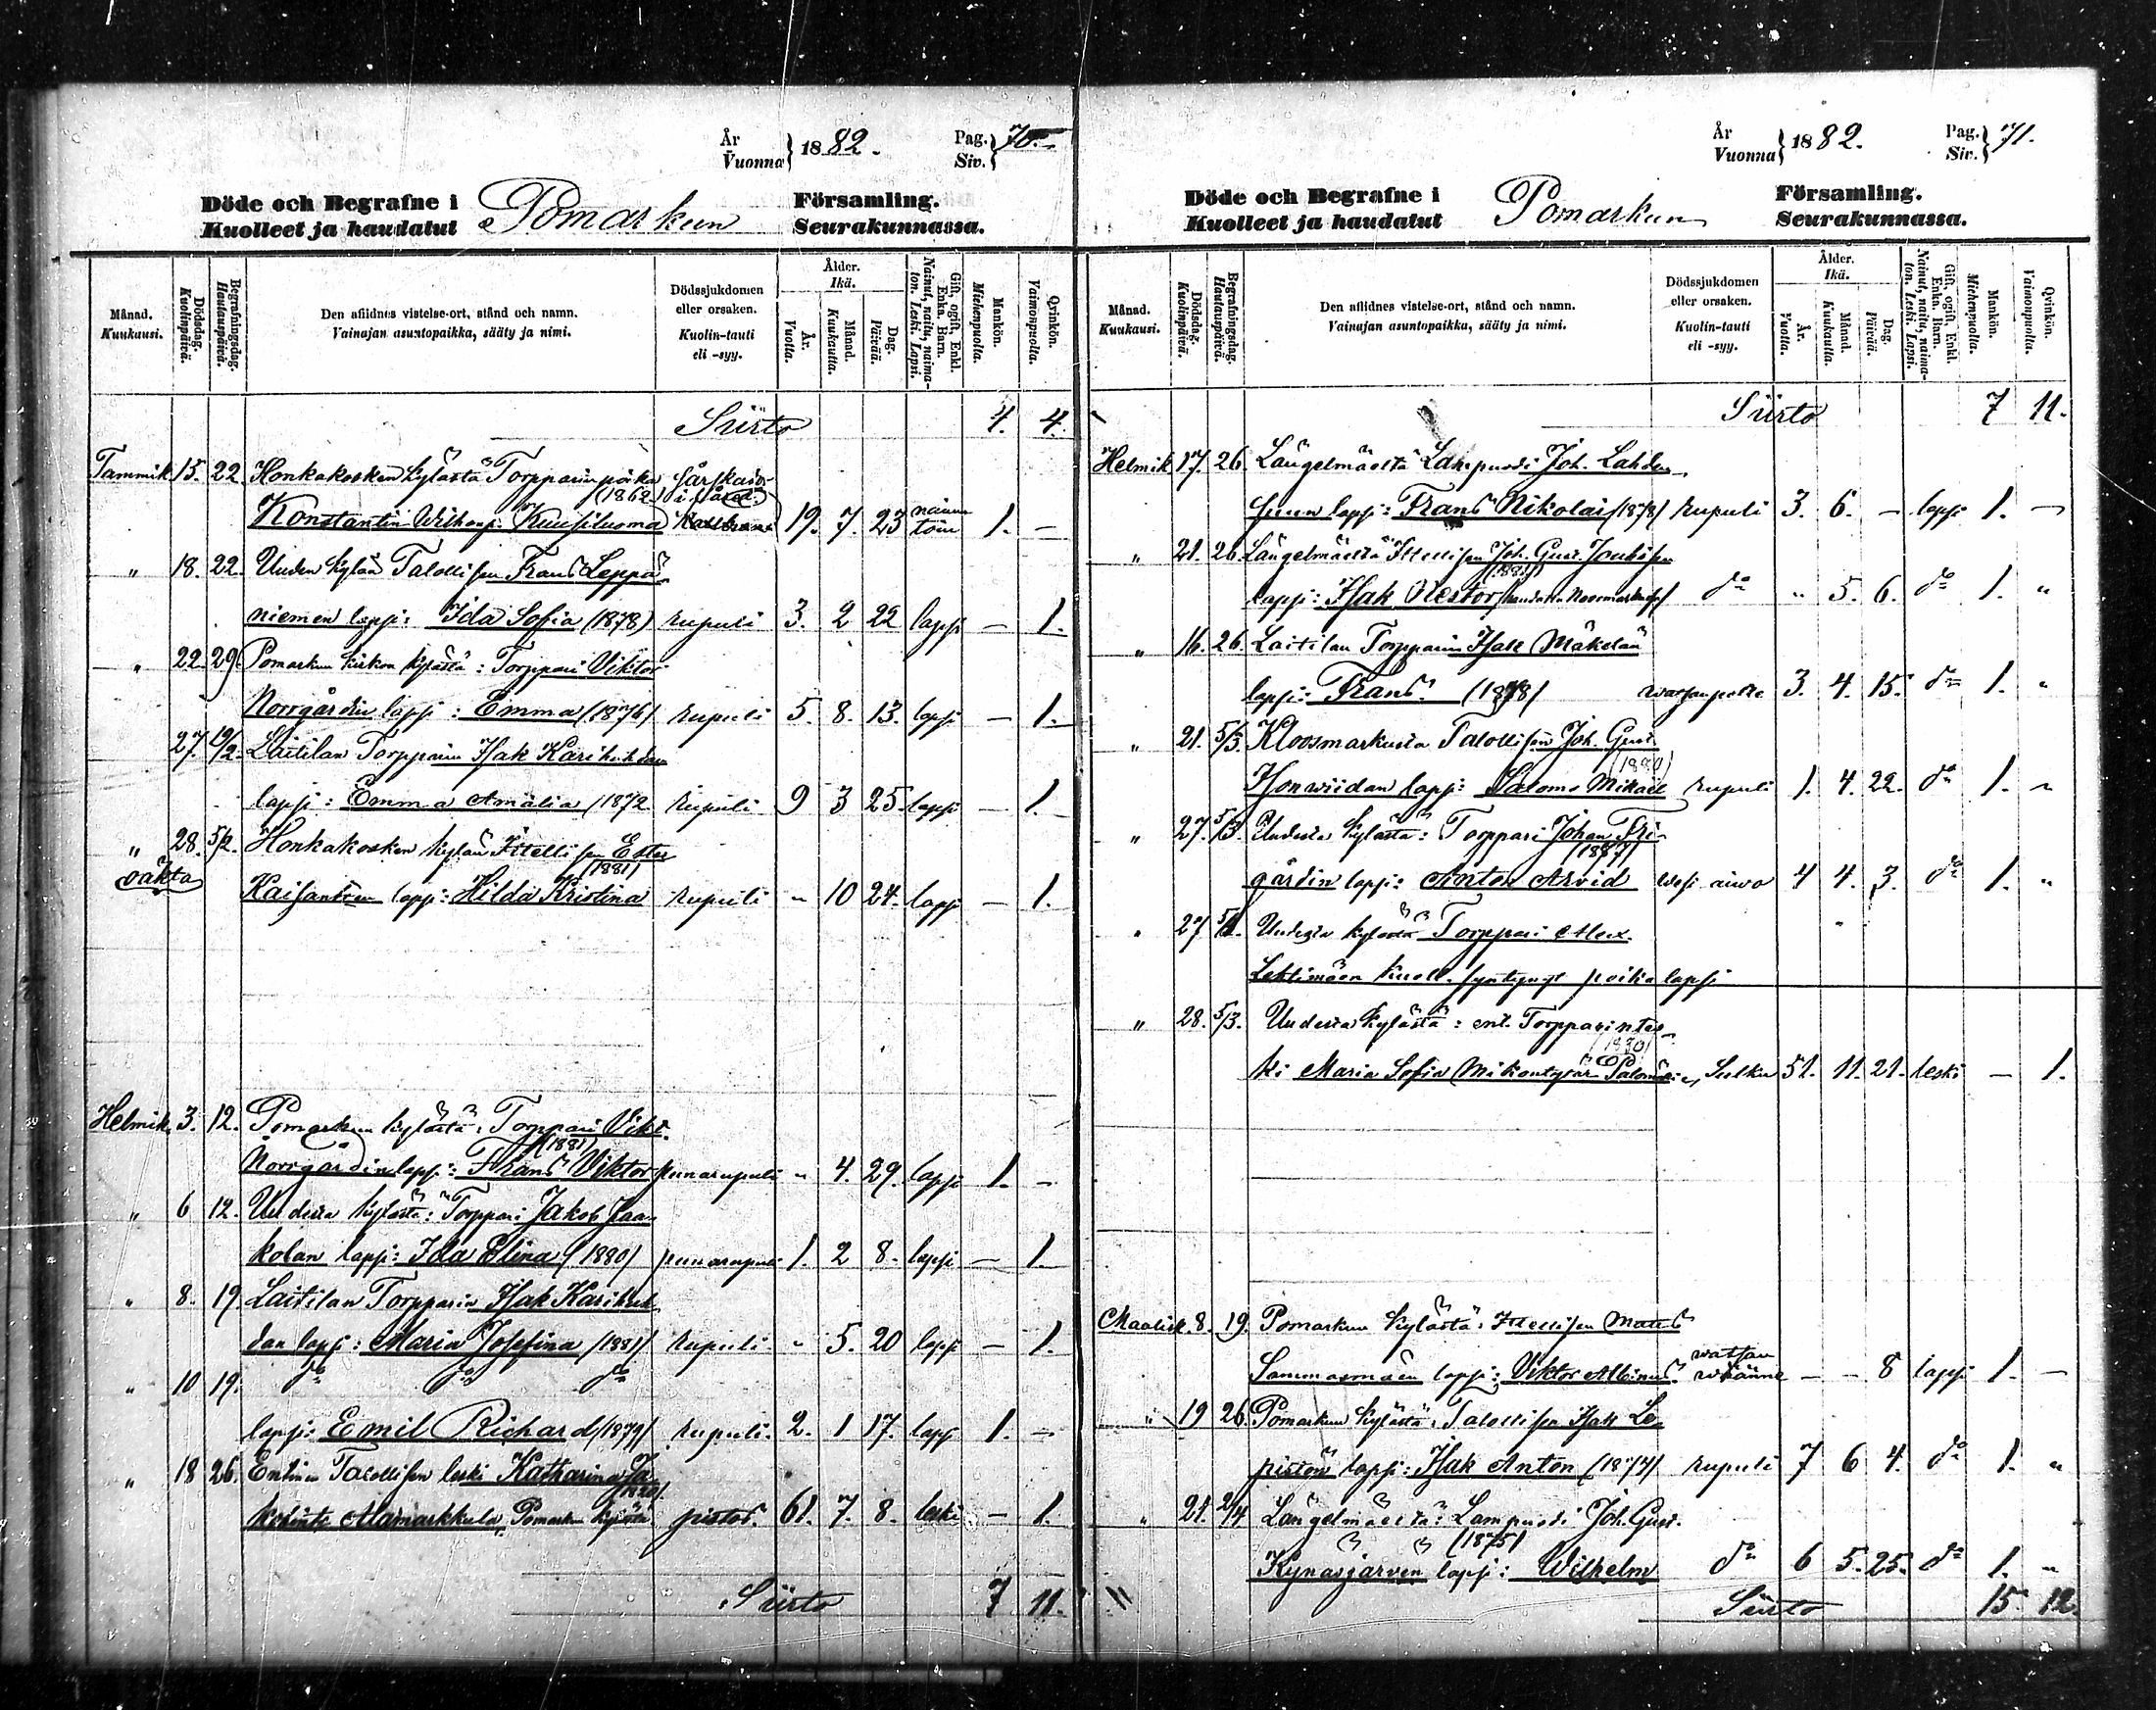 År
Vuonna } 1882.
Pag.
Siv. } 70.
Döde och Begrafne i
Kuolleet ja haudatut
Pomarkun
Församling.
Seurakunnassa.
Månad.
Kuukausi.
Dödsdag.
Kuolinpäivä.
Begrafningsdag.
Hautauspäivä.
Den aflidnes vistelse-ort, stånd och namn.
Vainajan asuntopaikka, sääty ja nimi.
Dödssjukdomen
eller orsaken.
Kuolin-tauti
eli -syy.
Ålder.
Ikä.
År.
Vuotta.
Månad.
Kuukautta.
Dag.
Päivää.
Gift, ogift, Enkl.
Enka. Barn.
Nainut, naitu, naima-
ton. Leski. Lapsi.
Mankön.
Miehenpuolta.
Qvinkön.
Vaimonpuolta.
Siirto 4. 4.
Tammik 15. 22. Honkakosken kylästä Torpparin poika
(1862)
Konstantin Wilhonp. Kuusiluoma 19. 7. 23 naima 1. —
töin
" 18. 22. Uuden kylän Talollisen Frans Leppä
niemen lapsi: Ida Sofia (1878) rupuli 3. 2 22 lapsi — 1.
" 22. 29. Pomarkun Kirkon kylästä: Torppari Viktor
Norrgårdin lapsi: Emma (1876) rupuli 5. 8. 13. lapsi — 1.
27. 12/2. Laitilan Torpparin Isak Karihuhdan
lapsi: Emma Amalia (1872 rupuli 9 3 25 lapsi — 1.
" 28. 5/2. Honkakosken kylän Itsellisen Ester
väkta (1881)
Kaisantren lapsi: Hilda Kristina rupuli " 10 24. lapsi — 1.
Helmik. 3. 12. Pomarkun kylästä: Torppari Vikt.
(1881)
Norrgårdin lapsi: Frans Viktor punarupuli " 4. 29. lapsi 1. —
" 6 12. Uudesta kylästä: Torppari Jakob Jaa-
kolan lapsi: Ida Elina (1880) punarupuli 1. 2 8. lapsi — 1.
" 8. 19 Laitilan Torpparin Isak Karihuh
dan lapsi: Maria Josefina (1881) rupuli " 5. 20 lapsi — 1.
" 10 19. do do do
lapsi: Emil Richard (1879) rupuli. 2. 1 17. lapsi 1. —
" 18 26. Entinen Talollisen leski Katharina Ja-
(1820)
kobint. Alamarkkula, Pomarkun kylästä pistos. 61. 7. 8. leski — 1.
Siirto 7 11.
År
Vuonna } 1882.
Pag.
Siv. } 71.
Döde och Begrafne i
Kuolleet ja haudatut
Pomarkun
Församling.
Seurakunnassa.
Månad.
Kuukausi.
Dödsdag.
Kuolinpäivä.
Begrafningsdag.
Hautauspäivä.
Den aflidnes vistelse-ort, stånd och namn.
Vainajan asuntopaikka, sääty ja nimi.
Dödssjukdomen
eller orsaken.
Kuolin-tauti
eli -syy.
Ålder.
Ikä.
År.
Vuotta.
Månad.
Kuukautta.
Dag.
Päivää.
Gift, ogift, Enkl.
Enka. Barn.
Nainut, naitu, naima-
ton. Leski. Lapsi.
Mankön.
Miehenpuolta.
Qvinkön.
Vaimonpuolta.
Siirto 7 11.
Helmik 17. 26. Längelmäeltä Lampuodi Joh. Lahden
suun lapsi: Frans Nikolai (1878) rupuli 3. 6. — lapsi 1. —
" 21. 26. Längelmäeltä Itsellisen Joh. Gust. Joukosen
(1881)
lapsi: Isak Nestor do " 5. 6. do 1. "
" 16. 26. Laitilan Torpparin Isak Mäkelän
lapsi: Frans (1878) 3. 4. 15. do 1. "
" 21. 5/3. Kloosmarkusta Talollisen Joh. Gust.
(1880)
Isonwiidan lapsi: Salomo Mikael rupuli 1. 4. 22. do 1. "
" 27. 5/3. Uudesta kylästä: Torppari Johan Fri-
gårdin lapsi: Anton Arvid wesi aiwo 4 4. 3. do 1. "
" 27 Uudesta kylästä Torppari Alex.
Lehtimäen kuoll. syntynyt poika lapsi
" 28. 5/3. Uudesta kylästä: ent. Torpparin les-
(1830)
ki Maria Sofia Mikontytär 51. 11. 21. leski — 1.
Maalisk. 8. 19. Pomarkun kylästä: Itsellisen Matts
Sammasmäen lapsi: Viktor Albinus watsan — — 8 lapsi 1. —
wäänne
" 19 26. Pomarkun kylästä: Talollisen Isak Le-
pistön lapsi: Isak Anton (1874) rupuli 7 6 4. do 1. "
" 21. 2/4 Längelmäeltä: Lampuodi Joh. Gust.
(1875)
Kynäsjärven lapsi: Wilhelm do 6 5. 25. do 1. "
Siirto 15 12.